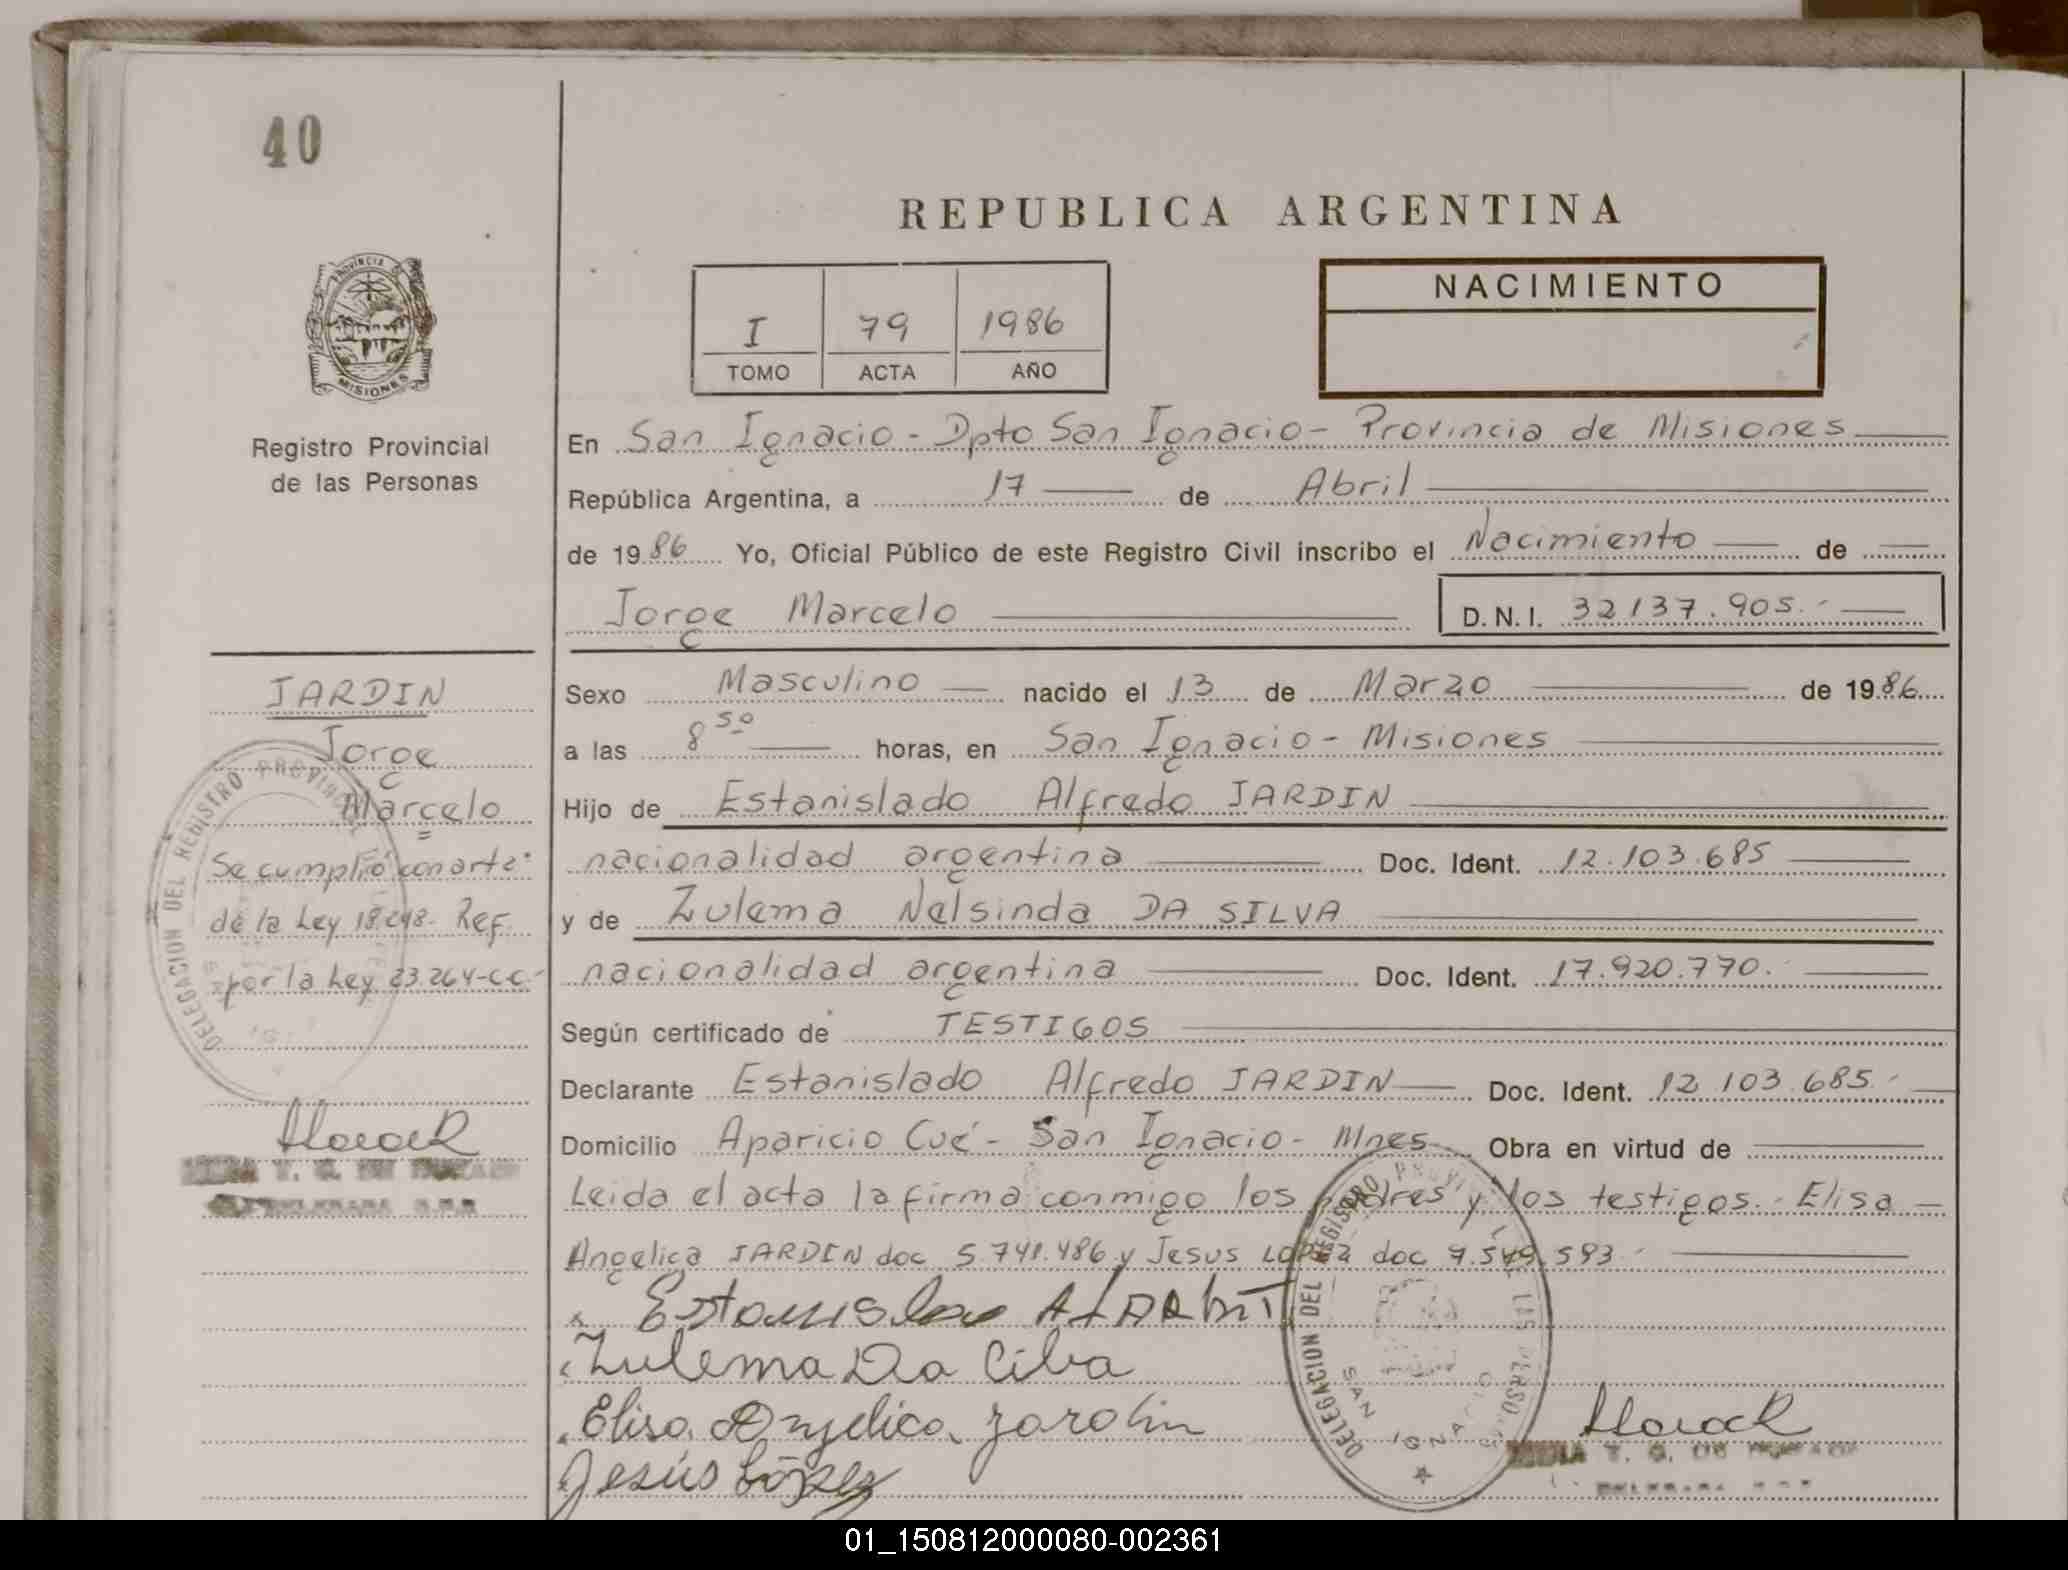 40
REPUBLICA ARGENTINA
PROVINCIA D
MISIONES
Registro Provincial
de las Personas
I 79 1986
TOMO ACTA AÑO
NACIMIENTO
En San Ignacio - Dpto San Ignacio - Provincia de Misiones
República Argentina, a 17 de Abril
de 1986 Yo, Oficial Público de este Registro Civil inscribo el Nacimiento de
Jorge Marcelo D.N.I. 32137.905.-
JARDIN
Jorge
Marcelo
Se cumplió con art 2º
de la Ley 18.248- Ref.
por la Ley 23.264-CC-
Sexo Masculino nacido el 13 de Marzo de 1986
a las 8 50 horas, en San Ignacio - Misiones
Hijo de Estanislado Alfredo JARDIN
nacionalidad argentina Doc. Ident. 12.103.685
y de Zulema Nelsinda DA SILVA
nacionalidad argentina Doc. Ident. 17.920.770.
Según certificado de TESTIGOS
Declarante Estanislado Alfredo JARDIN Doc. Ident. 12 103.685.-
Domicilio Aparicio Cué - San Ignacio - Mnes Obra en virtud de
Leida el acta la firma conmigo los padres y los testigos.- Elisa
Angelica JARDIN doc 5.741.486 y Jesus LOPEZ doc 7.549.593.-
Zulema Da Cilva
Elisa Angelica Jardin
Jesús López
DELEGACION DEL REGISTRO PROVINCIAL DE LAS PERSONAS
SAN IGNACIO
DELEGACION DEL REGISTRO PROVINCIAL
01_150812000080-002361